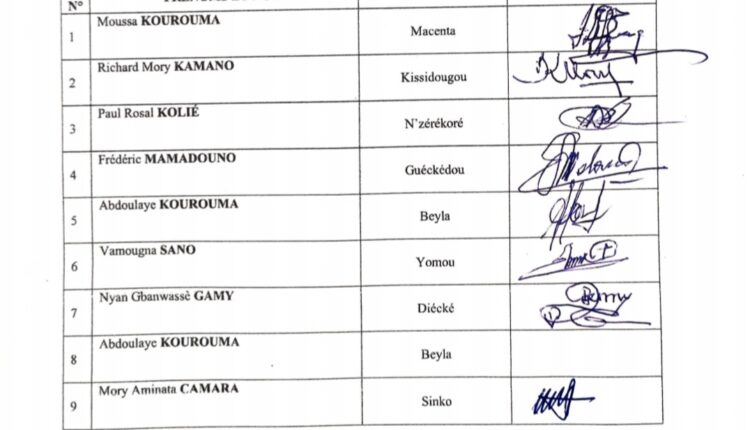 N°
1 Moussa KOUROUMA Macenta
2 Richard Mory KAMANO Kissidougou
3 Paul Rosal KOLIÉ N'zérékoré
4 Frédéric MAMADOUNO Guéckédou
5 Abdoulaye KOUROUMA Beyla
6 Vamougna SANO Yomou
7 Nyan Gbanwassè GAMY Diécké
8 Abdoulaye KOUROUMA Beyla
9 Mory Aminata CAMARA Sinko